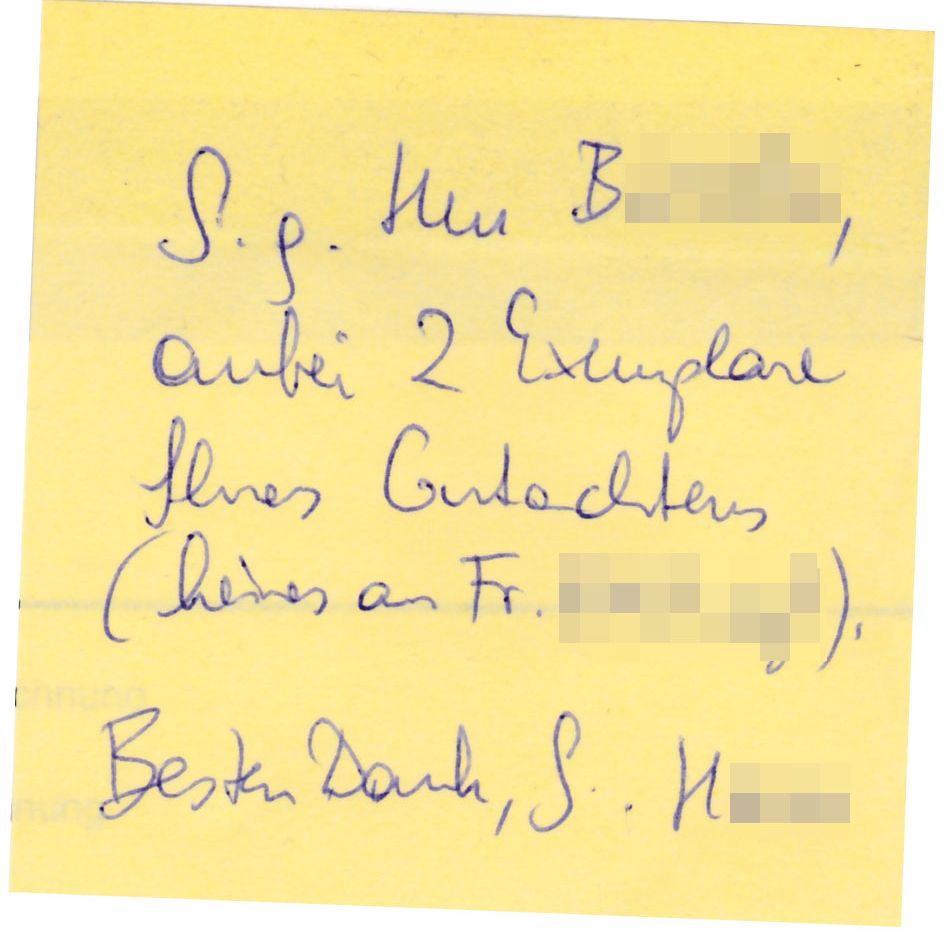 S.g. Herr B
anbei 2 Exemplare
Ihres Gutachtens
(keines an Fr. ).
Besten Dank, S. H
chnung
nung